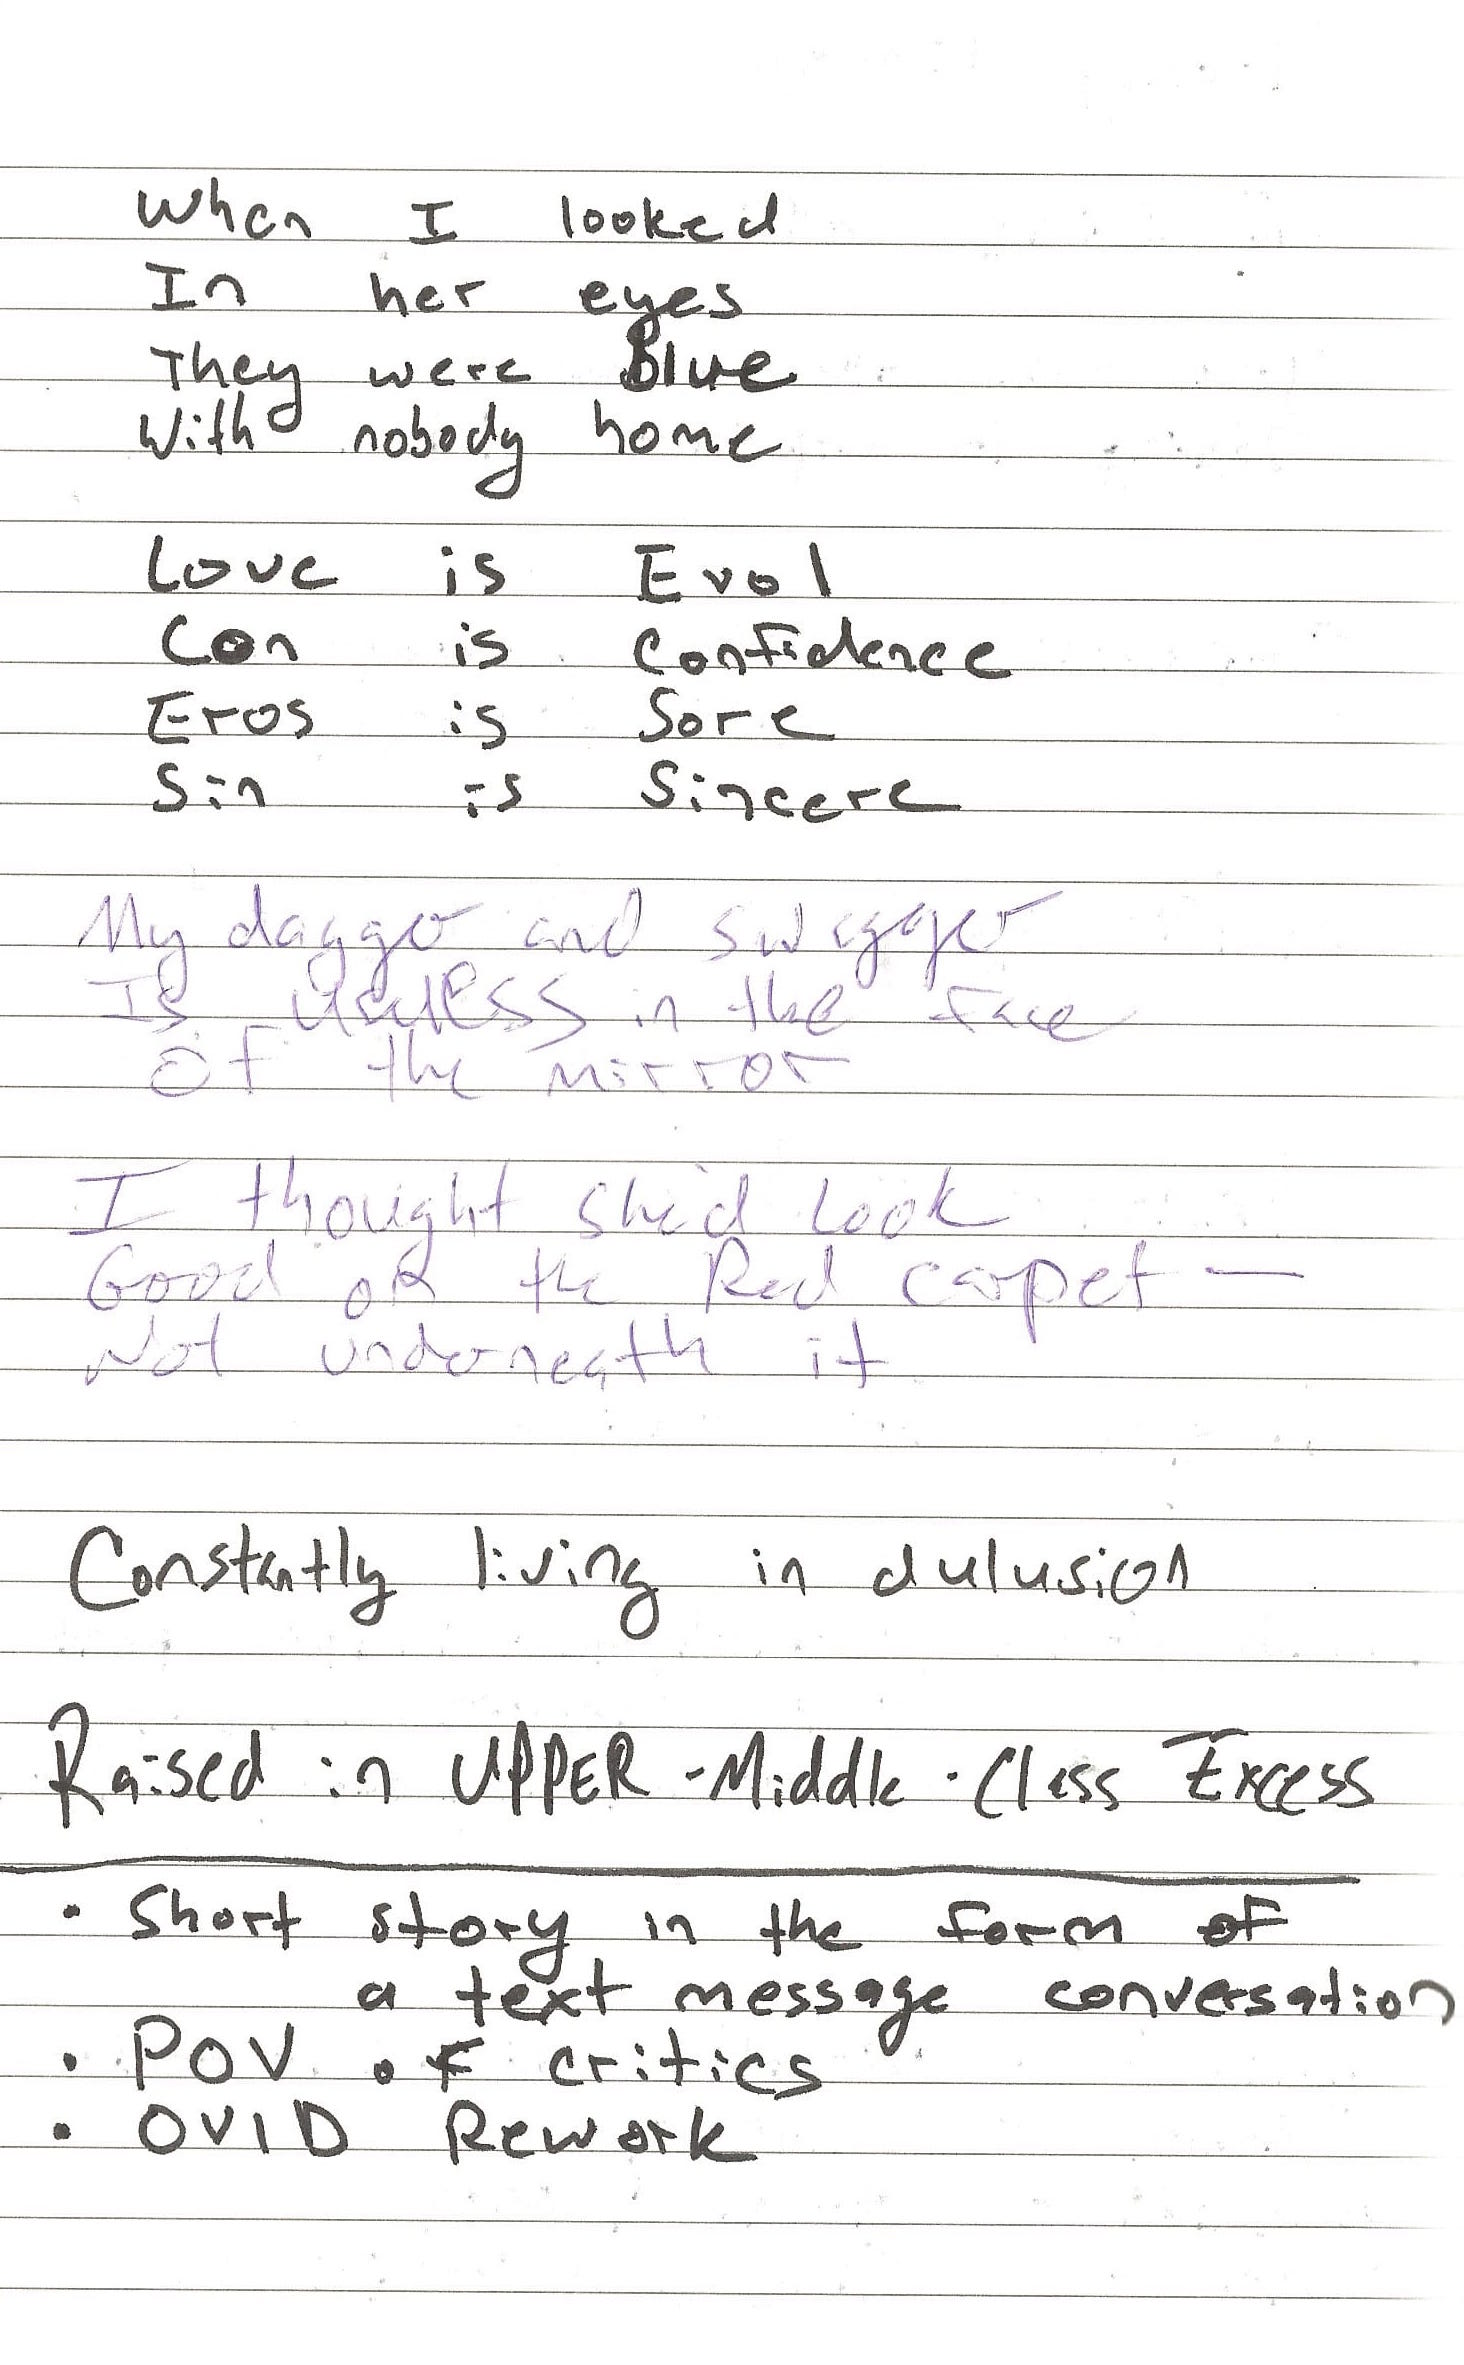 When I looked
In her eyes
They were Blue
With nobody home
Love is Evol
Con is Confidence
Eros is Sore
Sin is Sincere
My dagger and swagger
Is useless in the face
Of the mirror
I thought she'd look
Good on the Red carpet —
Not underneath it
Constantly living in dulusion
Raised in UPPER-Middle-Class Excess
• Short story in the form of
a text message conversation
• POV of critics
• OVID Rework